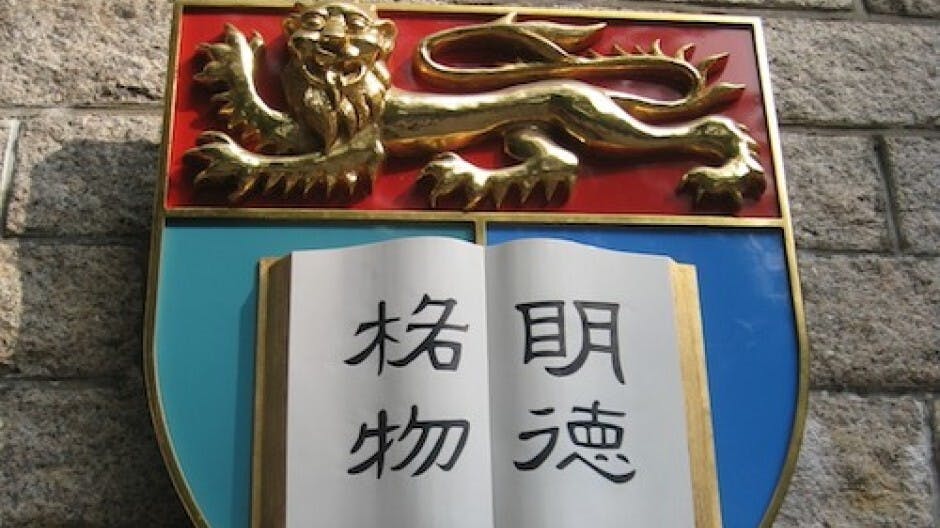 明德
格物